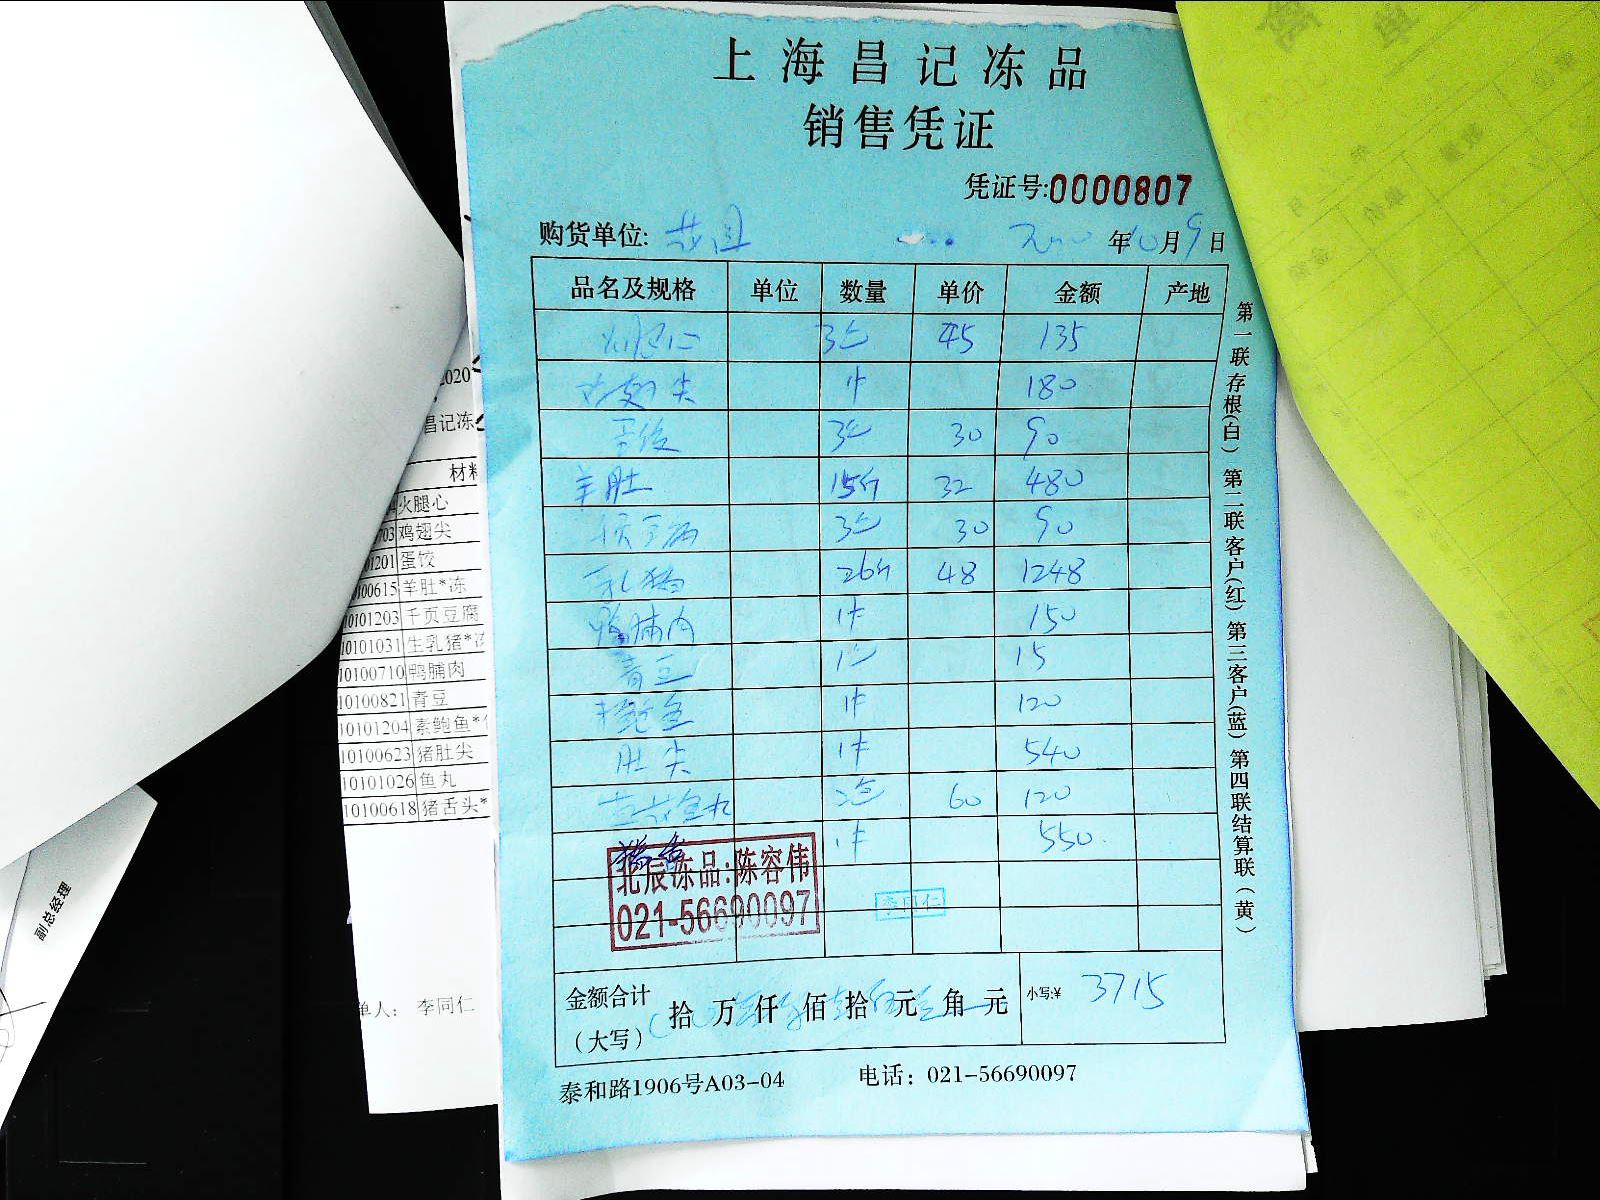 上海昌记冻品
销售凭证
凭证号:0000807
购货单位: 花园 年10月9日
品名及规格 单位 数量 单价 金额 产地
3包 45 135
鸡翅尖 1件 180
蛋饺 3包 30 90
羊肚 15斤 32 480
3包 30 90
乳猪 26斤 48 1248
鸭脯肉 1件 150
青豆 1包 15
鲍鱼 1件 120
肚尖 1件 540
鱼丸 2包 60 120
猪舌 1件 550
北辰冻品:陈容伟
021-56690097
李同仁
金额合计
(大写)
拾 万 仟 佰 拾 元 角 元
小写:¥ 3715
泰和路1906号A03-04 电话：021-56690097
第一联存根(白) 第二联客户(红) 第三客户(蓝) 第四联结算联(黄)
2020
昌记冻
材料
火腿心
703 鸡翅尖
01201 蛋饺
0100615 羊肚*冻
10101203 千页豆腐
10101031 生乳猪*冻
10100710 鸭脯肉
10100821 青豆
10101204 素鲍鱼*
10100623 猪肚尖
10101026 鱼丸
10100618 猪舌头*
单人： 李同仁
副总经理